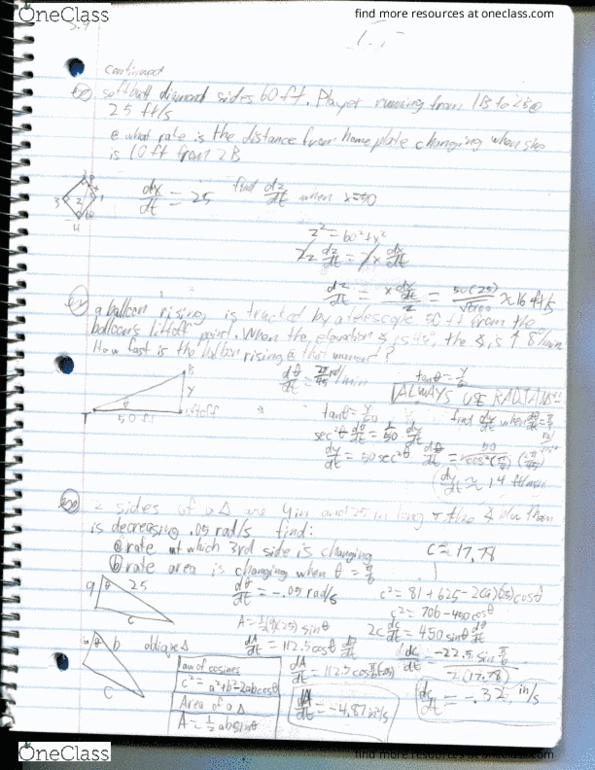 OneClass
find more resources at oneclass.com
5.9
continued
softball diamond sides 60 ft. Player running from 1B to 2B @
25 ft/s
@ what rate is the distance from home plate changing when she
is 10 ft from 2B
dx/dt = 25 find dz/dt when x=50
z² = 60² + x²
2z dz/dt = 2x dx/dt
dz/dt = x dx/dt / z = 50(25) / ≈ 16 ft/s
a balloon rising is tracked by a telescope 50 ft from the
balloon's liftoff point. When the elevation ∡ is 45°, the ∡ is ↑ 8°/min
How fast is the balloon rising @ that moment?
dθ/dt = 2π/45 rad/min
tanθ = y/50
ALWAYS USE RADIANS!!
B
y
θ
T 50 ft liftoff
tanθ = y/50
find dy/dt when
sec²θ dθ/dt = 1/50 dy/dt
dy/dt = 50 sec²θ dθ/dt = 50
dy/dt ≈ 14 ft/min
2 sides of a Δ are 9 in and 25 in long
is decreasing .05 rad/s find:
ⓐ rate at which 3rd side is changing
c = 17.78
ⓑ rate area is changing when θ = π/6
9 θ 25
c
dθ/dt = -.05 rad/s
c² = 81 + 625 - 2(9)(25)cosθ
c² = 706 - 450cosθ
A = ½(9)(25) sinθ
2c dc/dt = 450 sinθ dθ/dt
a θ b oblique Δ
C
dA/dt = 112.5 cosθ dθ/dt
dc/dt = -22.5 sin π/6 / 2(17.78)
law of cosines
c² = a²+b²-2abcosθ
dA/dt = 112.5 cos(π/6)(-.05)
dc/dt = -.32 in/s
Area of a Δ
A = ½ ab sinθ
dA/dt = -4.87 in²/s
OneClass
find more resources at oneclass.com